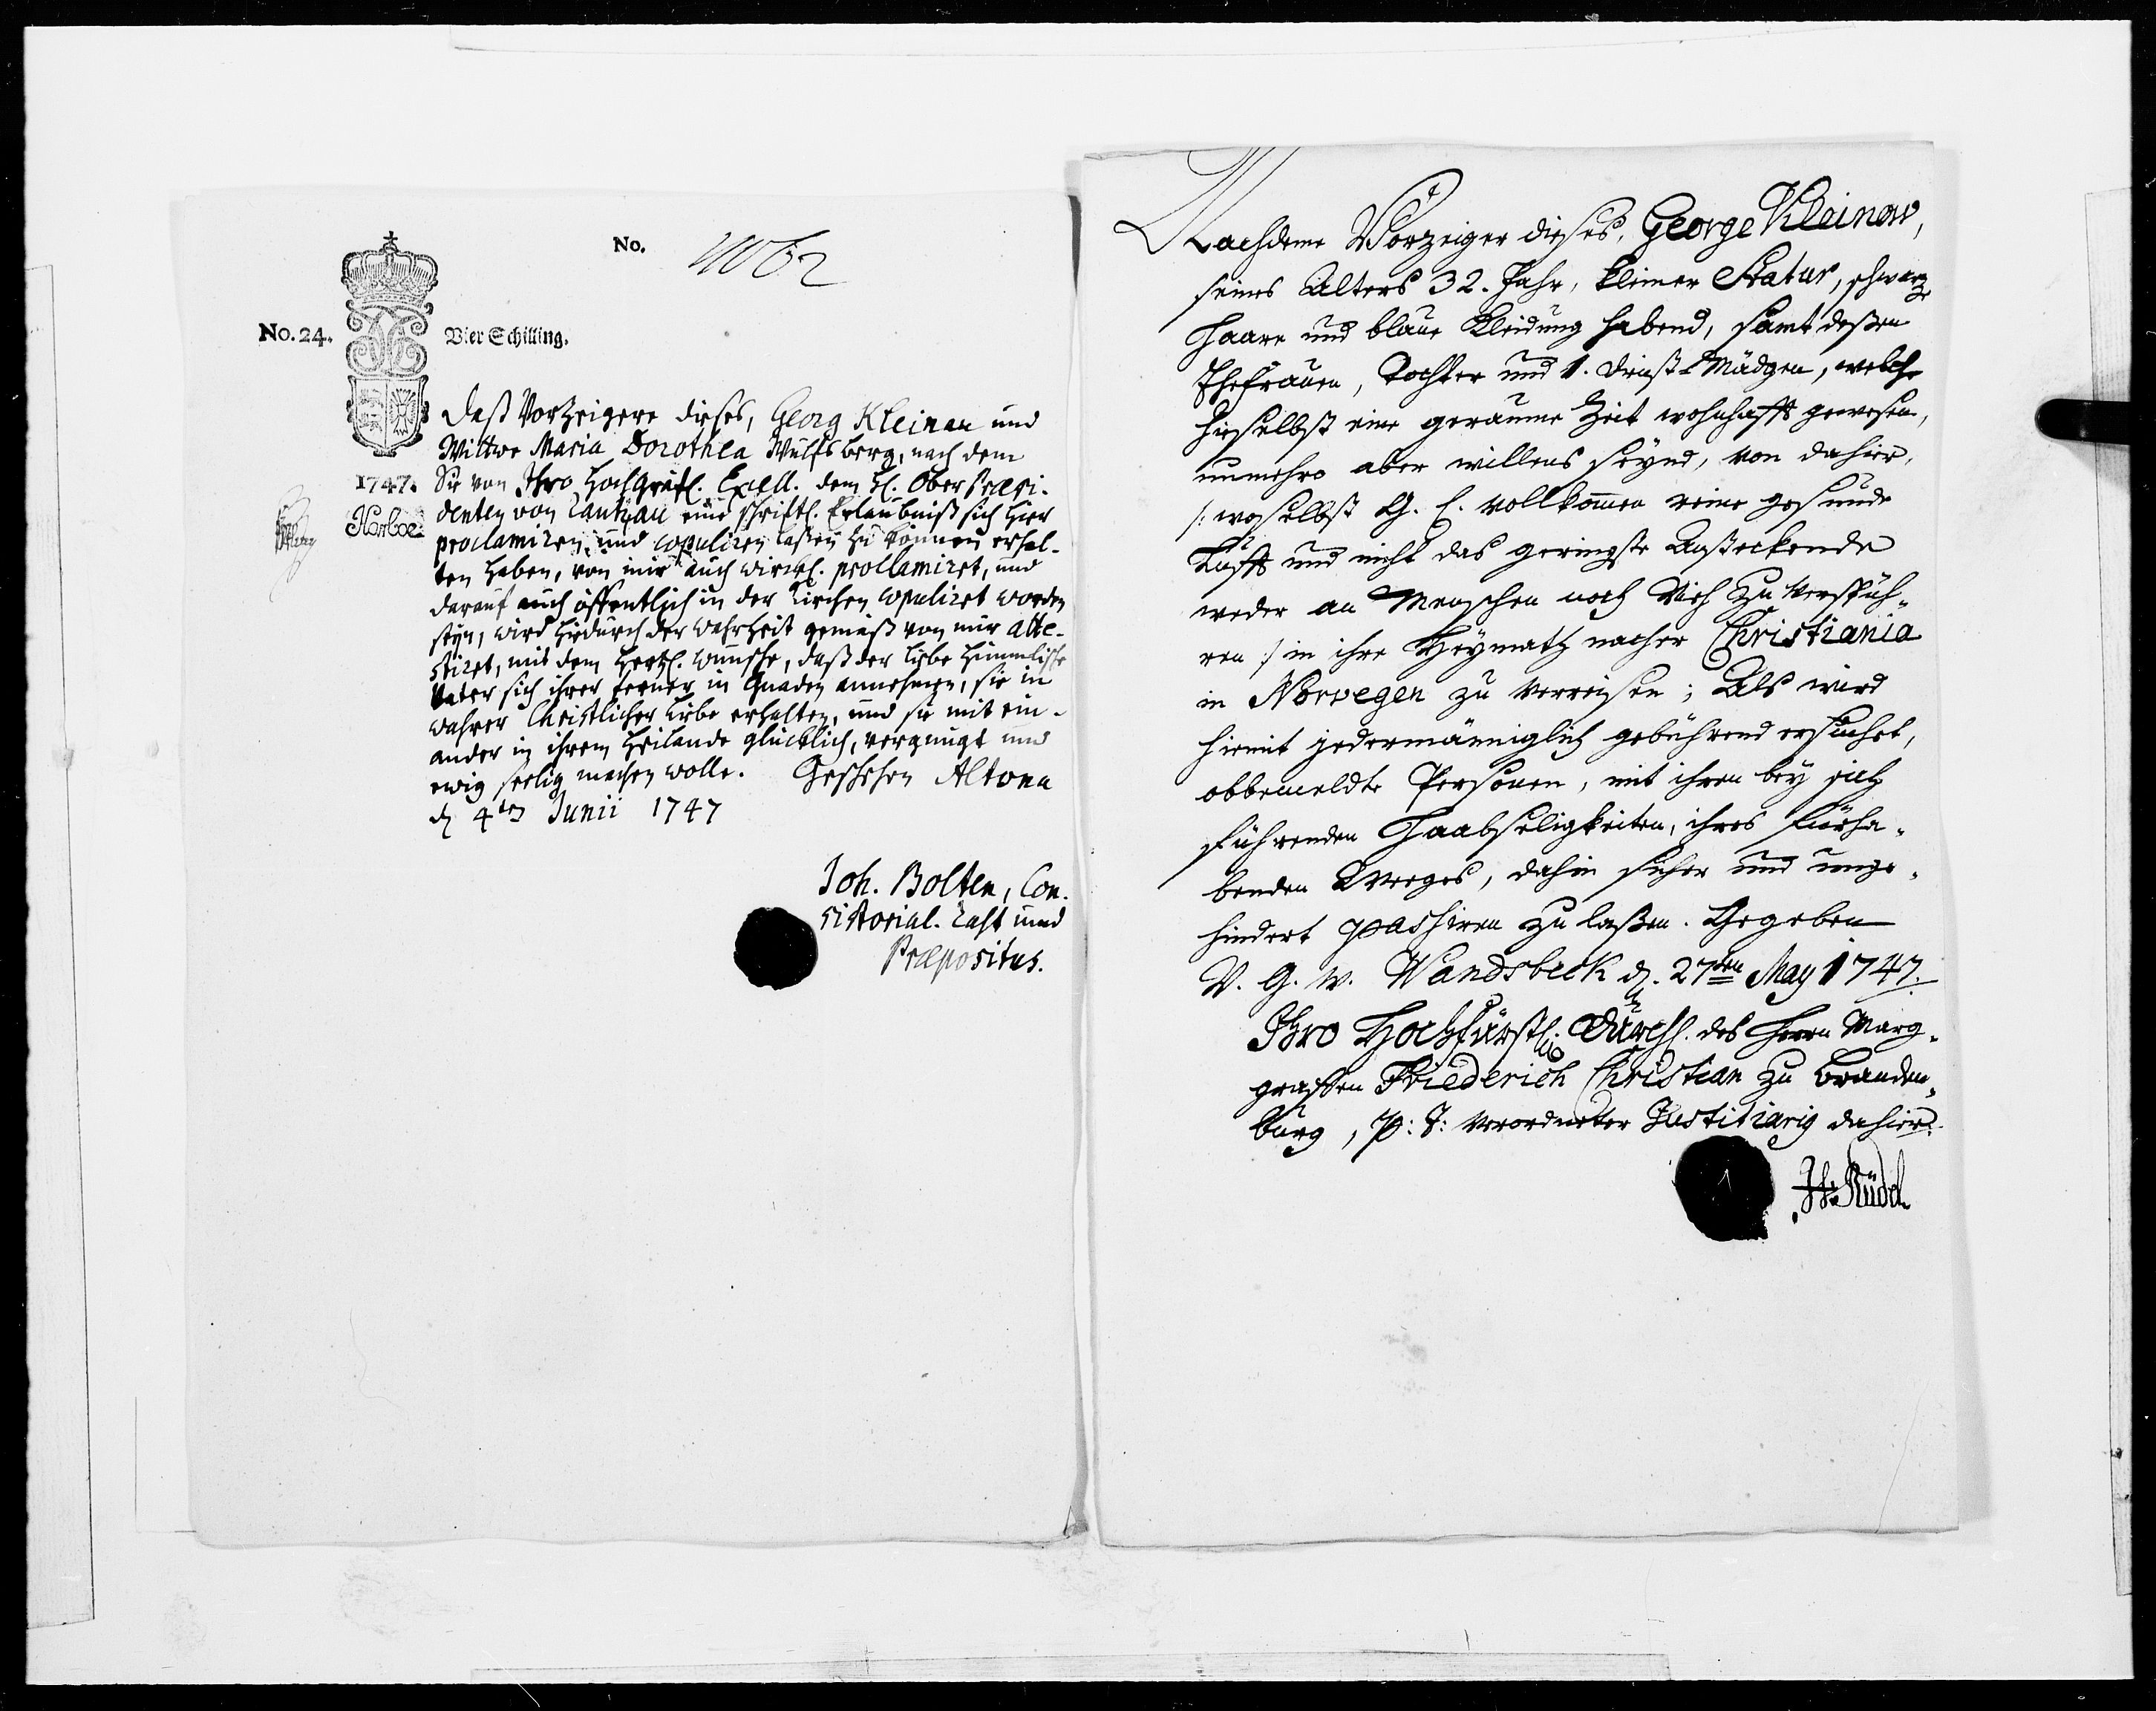 No.
No. 24.
Vier Schilling.
1747.
Daß Vorzeigere dieses, Georg Kleinau und
Wittwe Maria Dorothea Wulfsberg, nach dem
Sie von Ihro Hochgräfl. Excell. dem H. Ober Præsi-
denten von Rantzau eine schriftl. Erlaubniß sich hier
proclamiren und copuliren laßen zu können erhal-
ten haben, von mir auch wirckl. proclamiret, und
darauf auch öffentlich in der Kirchen copuliret worden
seyn, wird hiedurch der Wahrheit gemäß von mir atte-
stiret, mit dem hertzl. Wunsche, daß der liebe himmlische
Vater sich ihrer ferner in Gnaden annehmen, sie in
wahrer Christlicher Liebe erhalten, und sie mit ein-
ander in ihrem Heilande glücklich, vergnügt und
ewig seelig machen wolle. Geschehen Altona
d 4ten Junii 1747
Joh. Bolten, Con-
sistorial-Raht und
Præpositus.
Harboe
Nachdeme Vorzeiger dieses, George Kleinow,
seines Alters 32. Jahr, kleiner Statur, schwarze
Haare und blaue Kleidung habend, samt deßen
Ehefrauen, Tochter und 1. Dienst-Mädgen, welche
hieselbst eine geraume Zeit wohnhafft gewesen,
nunmehro aber willens seynd, von dahier,
/: woselbst G. L. vollkommen reine gesunde
Lufft und nicht das geringste Ansteckende
weder an Menschen noch Vieh zu verspüh-
ren :/ in ihre Heymath nacher Christiania
in Norwegen zu verreisen; Als wird
hiemit jedermänniglich gebührend ersuchet,
obbemeldte Personen, mit ihren bey sich
führenden Haabseligkeiten, ihres fürha-
benden Weeges, dahin sicher und unge-
hindert passiren zu laßen. Gegeben
V. G. W. Wandsbeck d. 27ten May 1747.
Ihro Hochfürstl. Durchl. des Herrn Marg-
graffen Friederich Christian zu Branden-
burg, p: t: verordneter Justitiarig dahier.